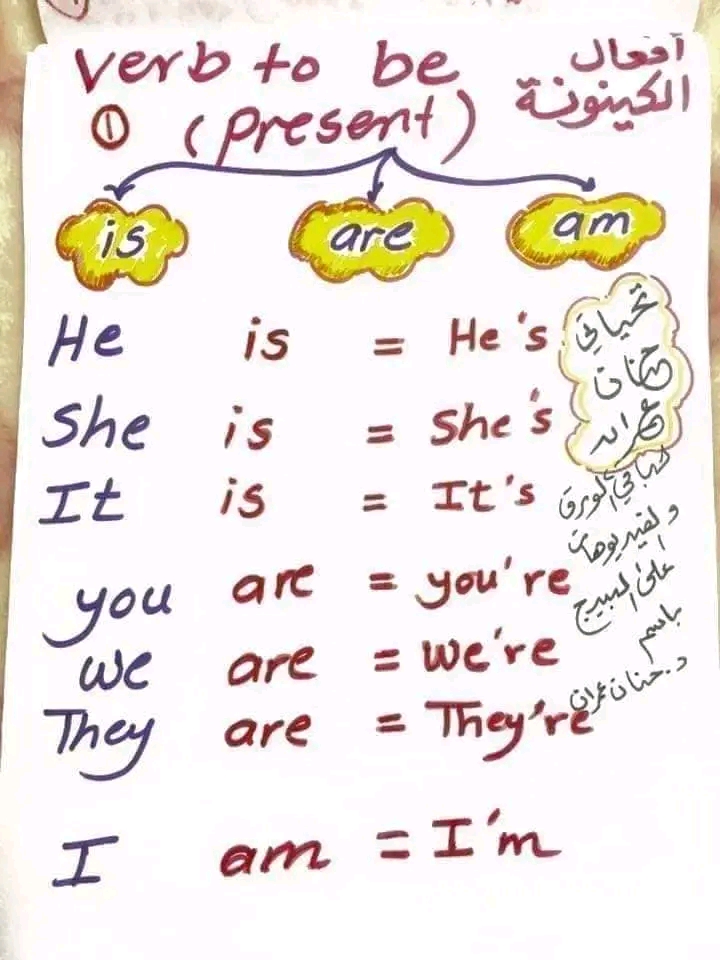 verb to be
أفعال
الكينونة
① (present)
is are am
He is = He's
She is = She's
It is = It's
you are = you're
we are = we're
They are = They're
I am = I'm
تحياتي
حنان
عمران
باقي الورق
والفيديوهات
على البيج
باسم
د. حنان عمران